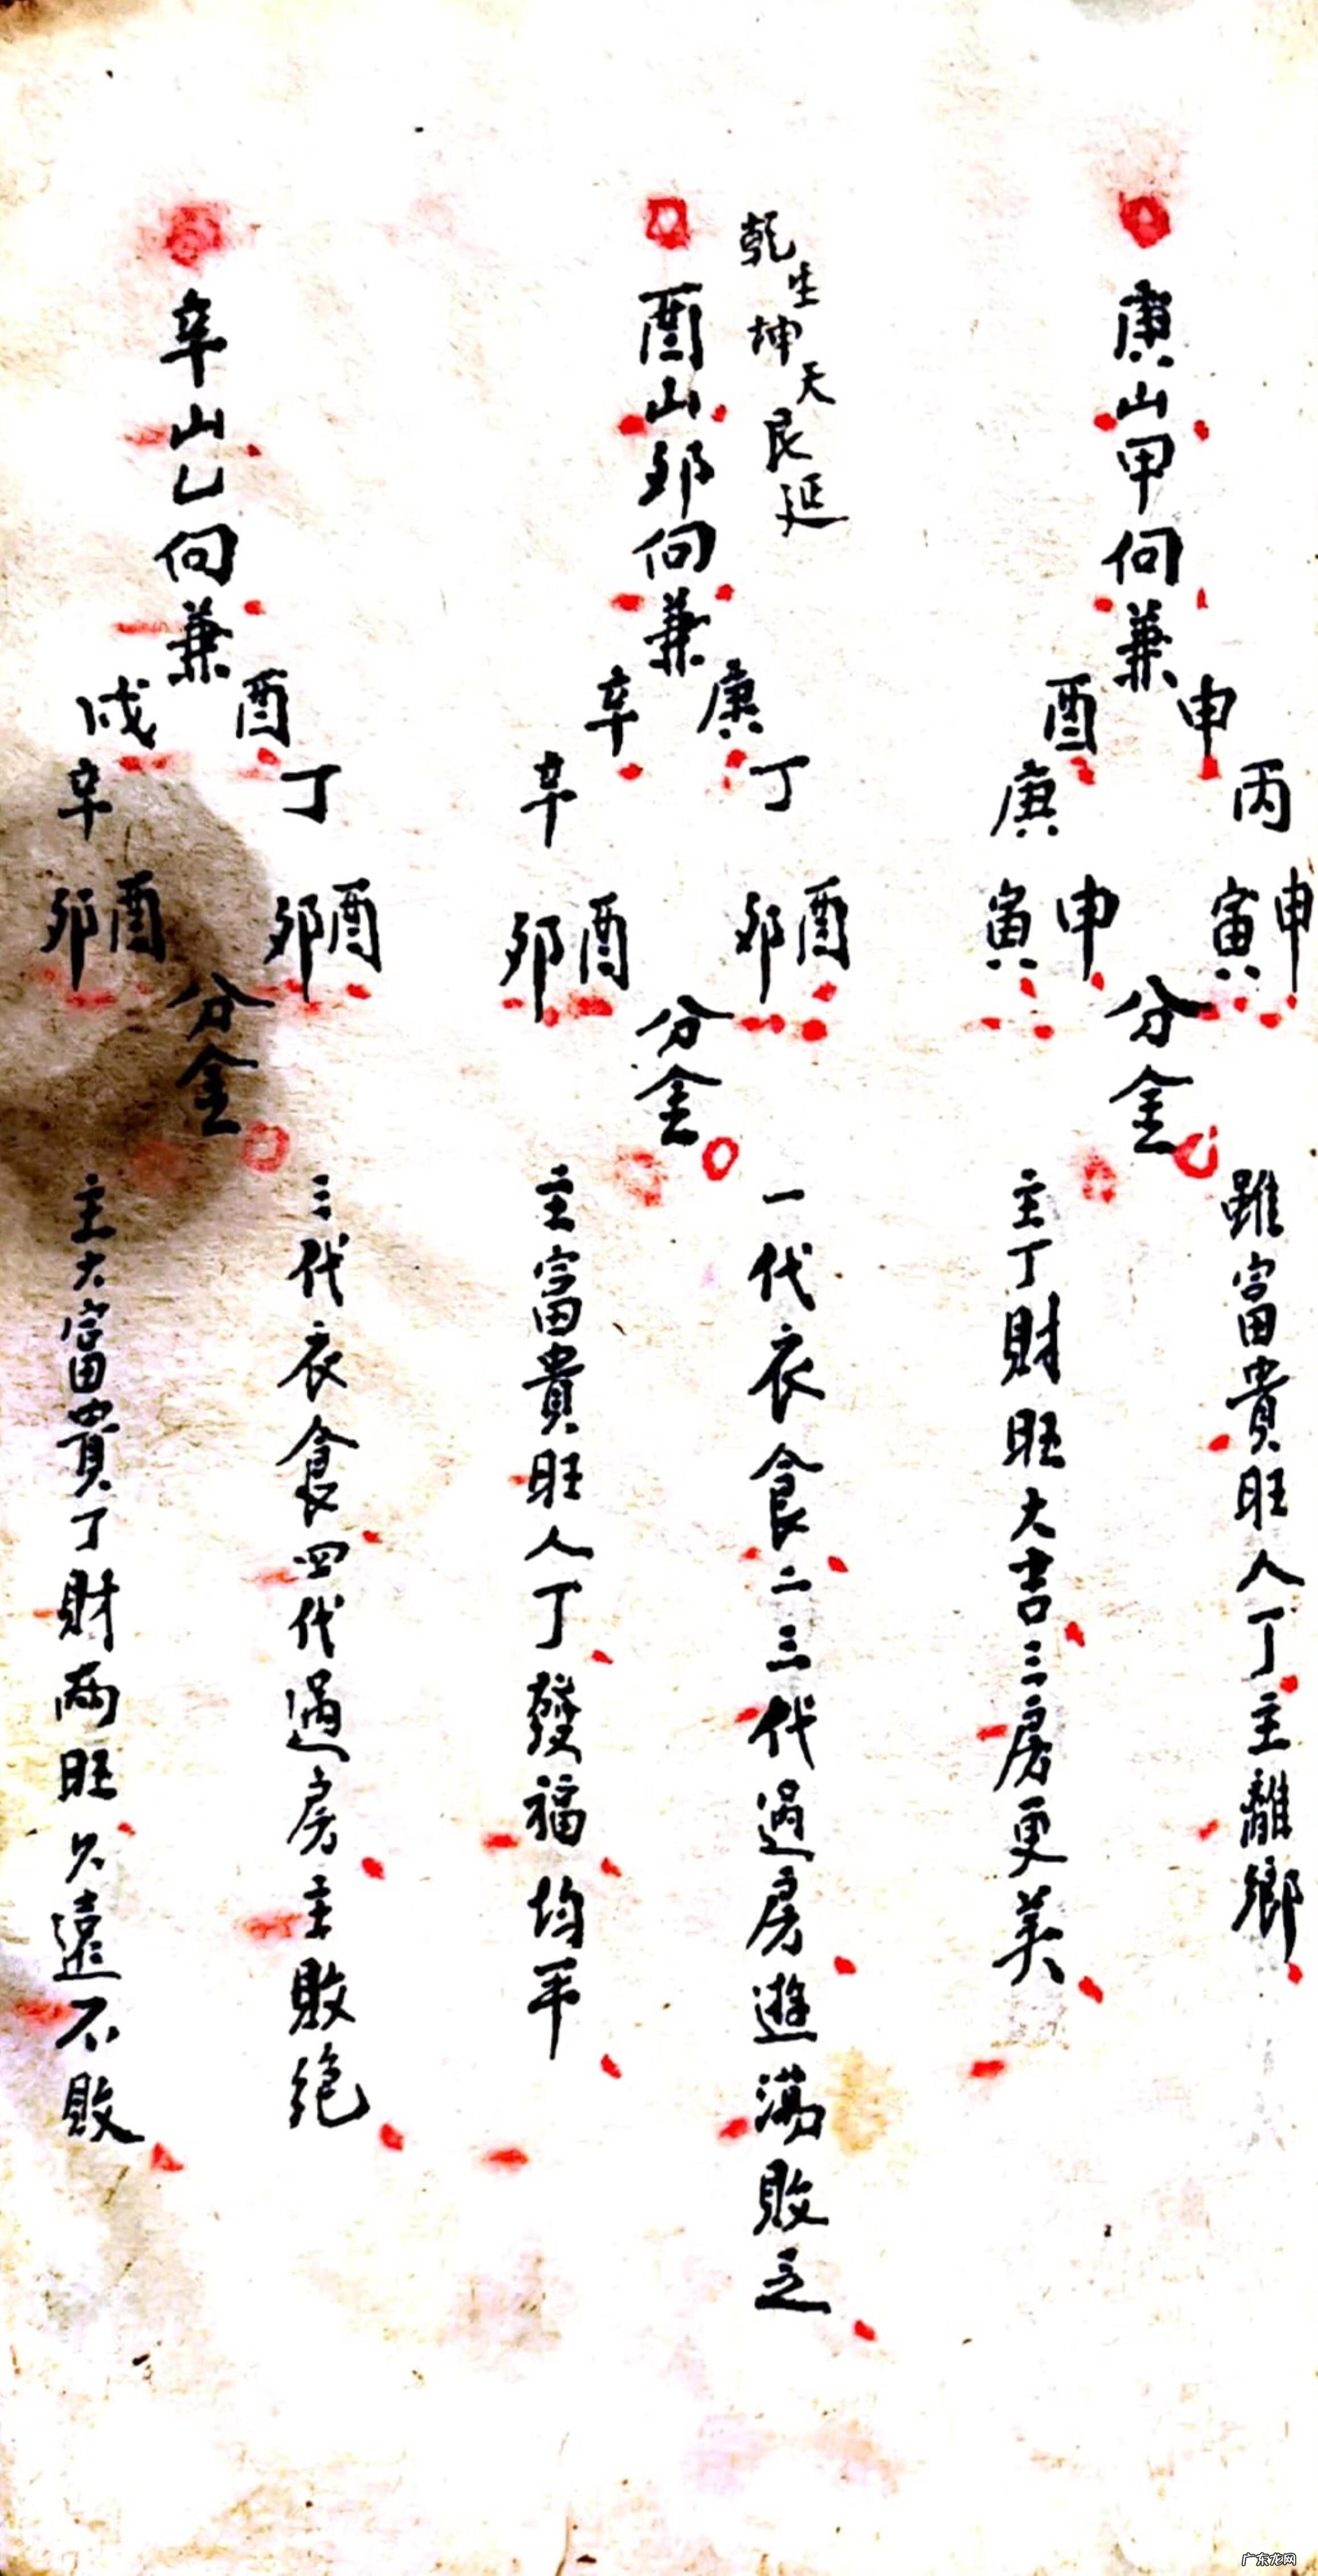 庚山甲向兼
申
丙
申
寅
酉
庚
申
寅
分金
雖富貴旺人丁主離鄉
主丁財旺大吉三房更美
乾生坤天艮延
酉山卯向兼
庚
丁
酉
卯
辛
辛
酉
卯
分金
一代衣食二三代過房遊蕩敗乏
主富貴旺人丁發福均平
辛山乙向兼
酉
丁
酉
卯
戌
辛
酉
卯
分金
三代衣食四代過房主敗絕
主大富貴丁財兩旺久遠不敗
广东龙网